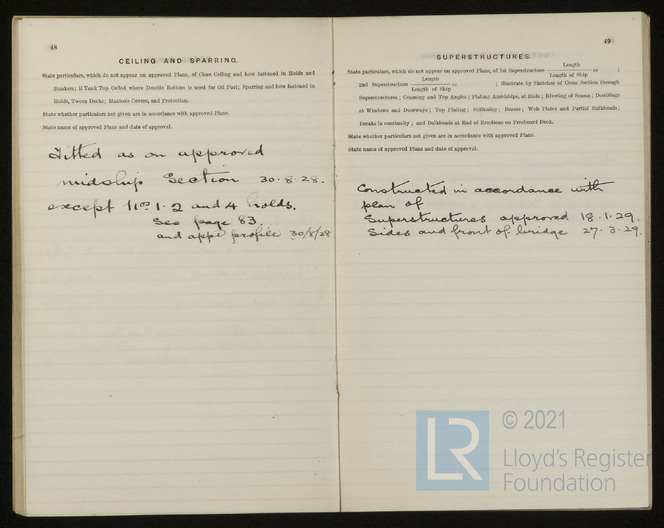 48
CEILING AND SPARRING.
State particulars, which do not appear on approved Plans, of Close Ceiling and how fastened in Holds and
Bunkers; if Tank Top Ceiled where Double Bottom is used for Oil Fuel; Sparring and how fastened in
Holds, Tween Decks; Manhole Covers, and Protection.
State whether particulars not given are in accordance with approved Plans.
State name of approved Plans and date of approval.
Fitted as on approved
midship Section 30.8.28.
except Nos 1.2 and 4 holds.
See page 83.
and appd profile 30/8/28
49
SUPERSTRUCTURES.
State particulars, which do not appear on approved Plans, of 1st Superstructure Length / Length of Ship = ;
2nd Superstructure Length / Length of Ship = ; Illustrate by Sketches of Cross Section through
Superstructures; Coaming and Top Angles; Plating Amidships, at Ends; Riveting of Seams; Doublings
at Windows and Doorways; Top Plating; Stiffening; Beams; Web Plates and Partial Bulkheads;
Breaks in continuity; and Bulkheads at End of Erections on Freeboard Deck.
State whether particulars not given are in accordance with approved Plans.
State name of approved Plans and date of approval.
Constructed in accordance with
plan of
Superstructures approved 18.1.29.
Sides and front of bridge 27.3.29.
LR
© 2021
Lloyd's Register
Foundation